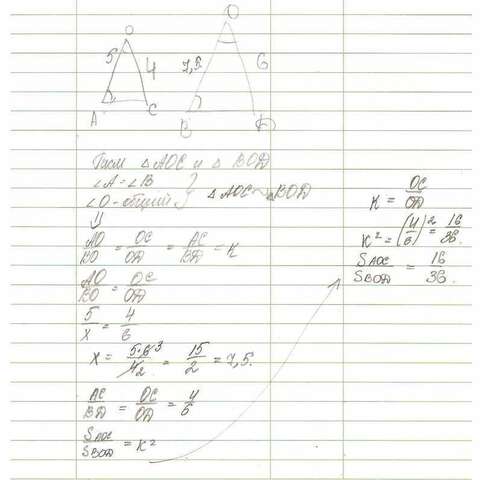 O
5
4
A
C
O
7,5
6
B
D
Расм △AOC и △BOD
∠A = ∠B
∠O - общий } △AOC ~ △BOD
⇓
AO/BO = OC/OD = AC/BD = K
AO/BO = OC/OD
5/x = 4/6
x = 5·6³/4₂ = 15/2 = 7,5.
AC/BD = OC/OD = 4/6
S AOC/S BOD = K²
K = OC/OD
K² = (4/6)² = 16/36.
S AOC/S BOD = 16/36.